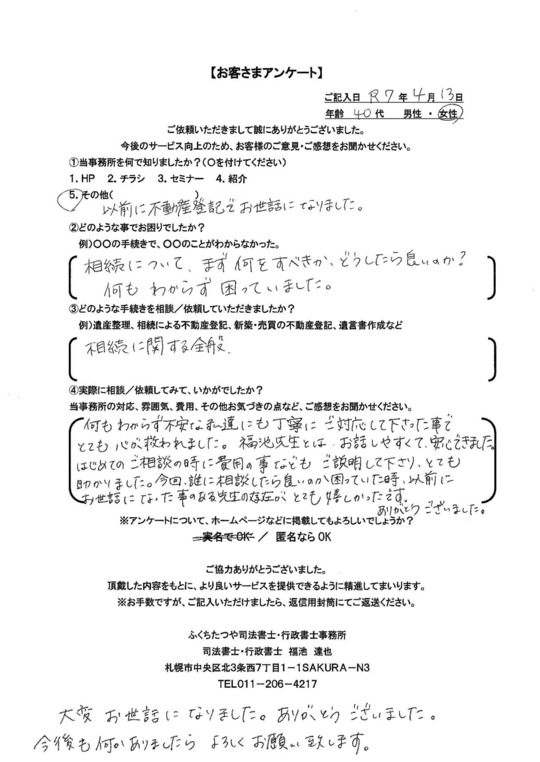 【お客さまアンケート】
ご記入日 R7年4月13日
年齢 40代 男性・女性
ご依頼いただきまして誠にありがとうございました。
今後のサービス向上のため、お客様のご意見・ご感想をお聞かせください。
①当事務所を何で知りましたか？(○を付けてください)
1.HP 2.チラシ 3.セミナー 4.紹介
5.その他( )
以前に不動産登記でお世話になりました。
②どのような事でお困りでしたか？
例)○○の手続きで、○○のことがわからなかった。
相続について、まず何をすべきか、どうしたら良いのか？
何もわからず困っていました。
③どのような手続きを相談/依頼していただきましたか？
例)遺産整理、相続による不動産登記、新築・売買の不動産登記、遺言書作成など
相続に関する全般、
④実際に相談/依頼してみて、いかがでしたか？
当事務所の対応、雰囲気、費用、その他お気づきの点など、ご感想をお聞かせください。
何もわからず不安な私達にも丁寧にご対応して下さった事で
とても心が救われました。福池先生とは、お話しやすくて、安心できました。
はじめてのご相談の時に費用の事などもご説明して下さり、とても
助かりました。今回、誰に相談したら良いのか困っていた時、以前に
お世話になった事のある先生の存在がとても嬉しかったです。
ありがとうございました。
※アンケートについて、ホームページなどに掲載してもよろしいでしょうか？
実名でOK / 匿名ならOK
ご協力ありがとうございました。
頂戴した内容をもとに、より良いサービスを提供できるように精進してまいります。
※お手数ですが、ご記入いただけましたら、返信用封筒にてご返送ください。
ふくちたつや司法書士・行政書士事務所
司法書士・行政書士 福池 達也
札幌市中央区北3条西7丁目1-1SAKURA-N3
TEL011-206-4217
大変お世話になりました。ありがとうございました。
今後も何かありましたらよろしくお願い致します。